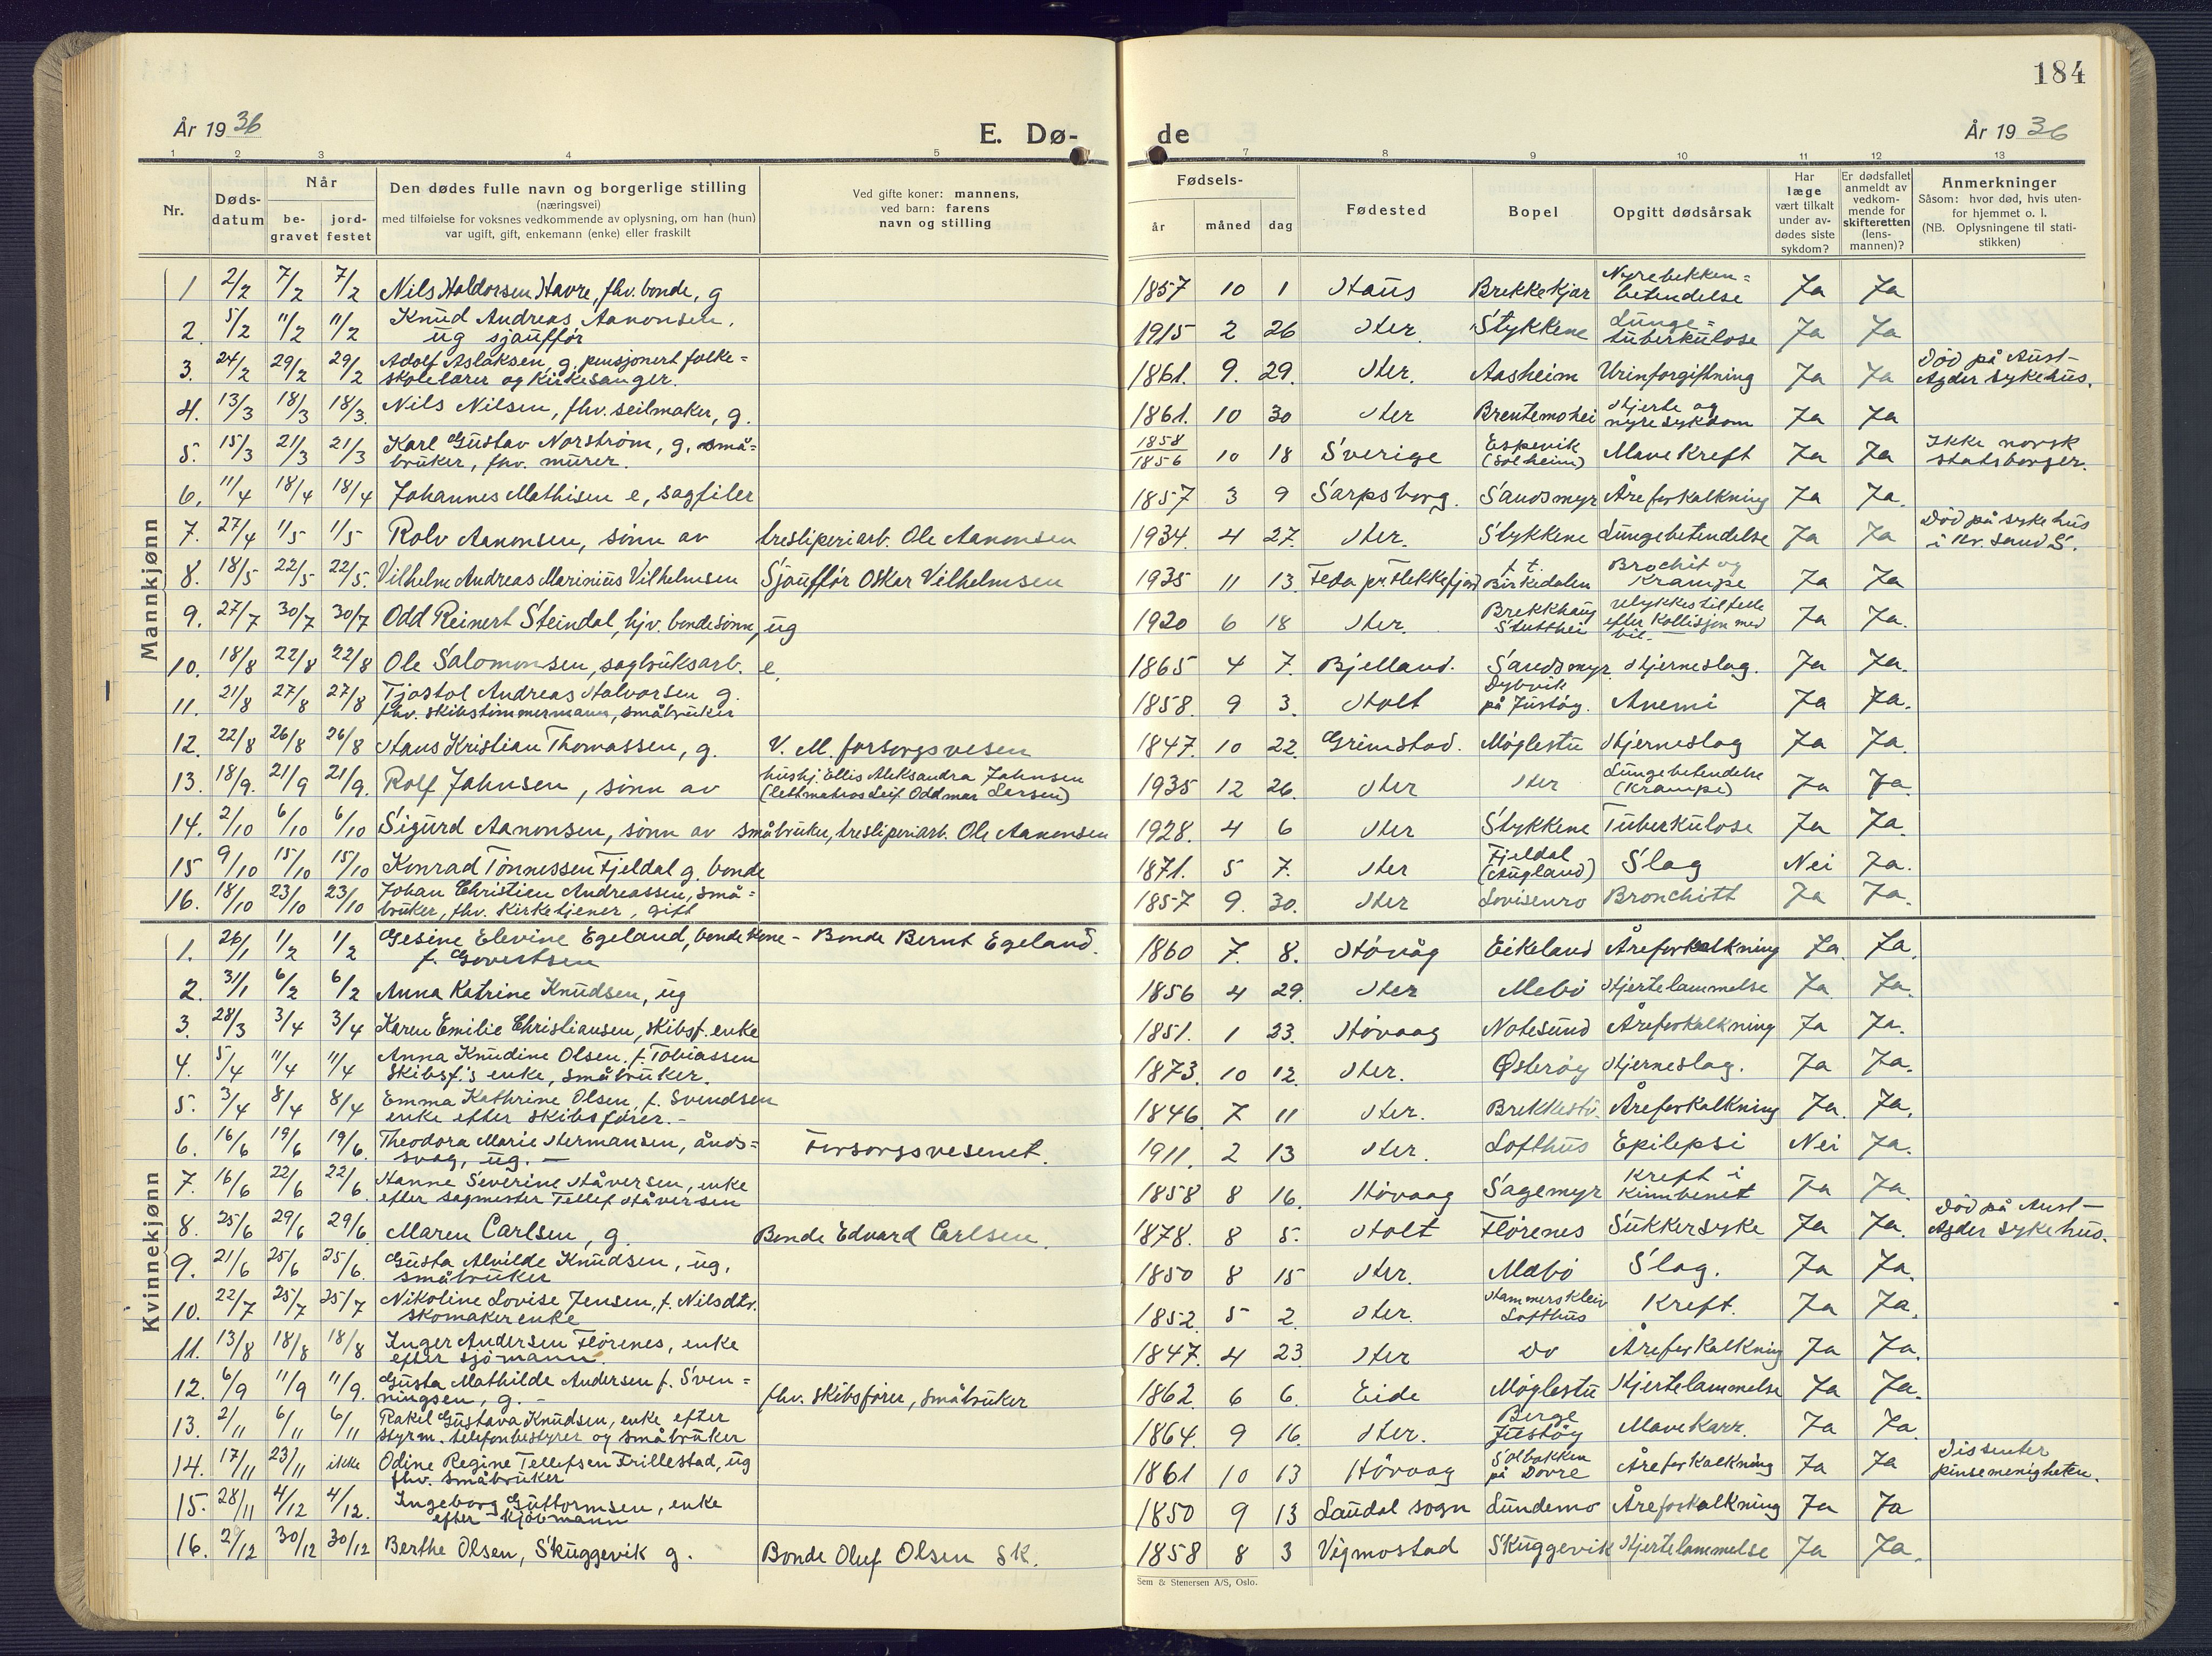 184
År 1936
E. Dø-
de
År 1936
1 2 3 4 5 7 8 9 10 11 12 13
Nr.
Døds-
datum
Når
be-
gravet
jord-
festet
Den dødes fulle navn og borgerlige stilling
(næringsvei)
med tilføielse for voksnes vedkommende av oplysning, om han (hun)
var ugift, gift, enkemann (enke) eller fraskilt
Ved gifte koner: mannens,
ved barn: farens
navn og stilling
Fødsels-
år måned dag
Fødested
Bopel
Opgitt dødsårsak
Har
læge
vært tilkalt
under av-
dødes siste
sykdom?
Er dødsfallet
anmeldt av
vedkom-
mende for
skifteretten
(lens-
mannen)?
Anmerkninger
Såsom: hvor død, hvis uten-
for hjemmet o. l.
(NB. Oplysningene til stati-
stikken)
Mannkjønn
1 2/2 7/2 7/2 Nils Haldorsen Havre, fhv. bonde, g 1857 10 1 Haus Brekkekjær Nyrebekken=
betendelse Ja Ja
2. 5/2 11/2 11/2 Knud Andreas Aanonsen,
ug sjauffør 1915 2 26 Her. Stykkene Lunge=
tuberkulose Ja Ja
3. 24/2 29/2 29/2 Adolf Aslaksen, g, pensjonert folke=
skolelærer og kirkesanger. 1861. 9. 29. Her. Aasheim Urinforgiftning Ja Ja Død på Aust-
Agder sykehus.
4. 13/3 18/3 18/3. Nils Nilsen, fhv. seilmaker, g. 1861. 10 30 Her Brentemohei Hjerte og
nyresykdom Ja Ja
5. 15/3 21/3 21/3 Karl Gustav Norstrøm, g, små=
bruker, fhv. murer. 1858
1856 10 18 Sverige Espevik
(Solheim) Mavekreft Ja Ja Ikke norsk
statsborger.
6. 11/4 18/4 18/4 Johannes Mathisen e, sagfiler 1857 3 9 Sarpsborg. Sandsmyr Åreforkalkning Ja Ja.
7. 27/4 1/5 1/5 Rolv Aanonsen, sønn av tresliperiarb. Ole Aanonsen 1934. 4 27. Her. Stykkene Lungebetendelse Ja Ja Død på sykehus
i Kr. sand S.
8. 18/5 22/5 22/5. Vilhelm Andreas Marinius Vilhelmsen Sjauffør Oskar Vilhelmsen 1935 11 13. Feda pr Flekkefjord t. t.
Birkedalen Brochit og
Krampe Ja Ja
9. 27/7 30/7 30/7 Odd Reinert Steindal, hjv. bondesønn, ug 1920 6 18 Her. Brekkhaug
Stutthei Ulykkestilfelle
efter Kollisjon med
bil. Ja Ja.
10. 18/8 22/8 22/8 Ole Salomonsen, sagbruksarb. e. 1865 4 7. Bjelland. Sandsmyr. Hjerneslag. Ja Ja.
11. 21/8 27/8 27/8 Tjøstol Andreas Halvorsen g.
fhv. skibstimmermann, småbruker 1858. 9 3. Holt Dybvik
på Justøy. Anemi Ja Ja.
12. 22/8 26/8 26/8 Hans Kristian Thomassen, g. V. M. forsorgsvesen 1847. 10 22. Grimstad. Møglestu Hjerneslag Ja Ja.
13. 18/9. 21/9 21/9. Rolf Jahnsen, sønn av hushj. Ellis Aleksandra Jahnsen
(lettmatros Leif Oddmar Larsen) 1935 12 26. Her Her Lungebetendelse
(Krampe) Ja Ja.
14. 2/10 6/10 6/10 Sigurd Aanonsen, sønn av småbruker, tresliperiarb. Ole Aanonsen 1928. 4 6 Her Stykkene Tuberkulose Ja Ja.
15 9/10 15/10 15/10 Konrad Tønnessen Fjeldal g. bonde 1871. 5 7. Her Fjeldal
(Augland) Slag Nei Ja.
16. 18/10 23/10 23/10 Johan Christian Andreassen, små=
bruker, fhv. kirketjener, gift 1857 9. 30. Her Lovisenro Bronchitt Ja Ja.
Kvinnekjønn
1. 26/1 1/2 1/2 Gesine Elevine Egeland, bondekone - Bonde Bernt Egeland.
f. Govertsen 1860 7. 8. Høvåg Eikeland Åreforkalkning Ja. Ja.
2. 31/1 6/2 6/2 Anna Katrine Knudsen, ug 1856 4 29. Her Mebø Hjertelammelse Ja Ja.
3. 28/3 3/4 3/4 Karen Emilie Christiansen, skibsf. enke 1851. 1 23. Høvaag Notesund Åreforkalkning Ja Ja.
4. 5/4 11/4 11/4 Anna Knudine Olsen. f. Tobiassen
skibsf.'s enke, småbruker. 1873. 10 12. Her. Østerøy Hjerneslag. Ja Ja.
5. 3/4 8/4 8/4 Emma Kathrine Olsen, f. Svendsen
enke efter skibsfører.- 1846. 7 11 Her. Brekkestø. Åreforkalkning Ja. Ja.
6. 16/6 19/6 19/6. Theodora Marie Hermansen, ånds=
svag, ug. — Forsorgsvesenet. 1911. 2 13 Her. Lofthus Epilepsi Nei Ja.
7. 16/6 22/6 22/6. Hanne Severine Håversen, enke
efter sagmester Tellef Håversen 1858 8 16. Høvaag Sagemyr Kreft i
Kinnbenet Ja Ja.
8. 25/6 29/6 29/6. Maren Carlsen, g. Bonde Edvard Carlsen. 1878. 8 5. Holt Flørenes Sukkersyke Ja Ja. Død på Aust-
Agder sykehus.
9. 21/6 25/6 25/6. Gusta Alvilde Knudsen, ug,
småbruker 1850 8 15 Her. Mebø Slag. Ja Ja.
10. 22/7 25/7 25/7 Nikoline Lovise Jensen, f. Nilsdtr.
skomakerenke 1852. 5 2. Her. Hammerskleiv
Lofthus Kreft. Ja Ja.
11. 13/8 18/8 18/8 Inger Andersen Flørenes, enke
efter sjømann. 1847. 4 23. Her do Åreforkalkning Ja Ja.
12. 6/9 11/9 11/9. Gusta Mathilde Andersen f. Sven=
ningsen, g. - fhv. skibsfører, småbruker 1862. 6 6. Eide Møglestu Hjertelammelse Ja Ja.
13. 2/11 6/11 6/11 Rakel Gustava Knudsen, enke efter
styrm. telefonbestyrer og småbruker 1864. 9 16. Her. Berge
Justøy Mavekarr. Ja Ja.
14. 17/11 23/11 ikke Odine Regine Tellefsen Trillestad, ug
fhv. småbruker 1861 10 13 Høvaag Solbakken
på Dovre Åreforkalkning Ja Ja Dissenter
pinsemenigheten.
15. 28/11 4/12 4/12. Ingeborg Guttormsen, enke
efter kjøbmann 1850 9 13 Laudal sogn Lundemo Åreforkalkning Ja Ja
16. 2/12 30/12 30/12 Berthe Olsen, Skuggevik g. Bonde Oluf Olsen Sk. 1858 8 3 Vigmostad Skuggevik Hjertelammelse Ja Ja.
Sem & Stenersen A/S, Oslo.